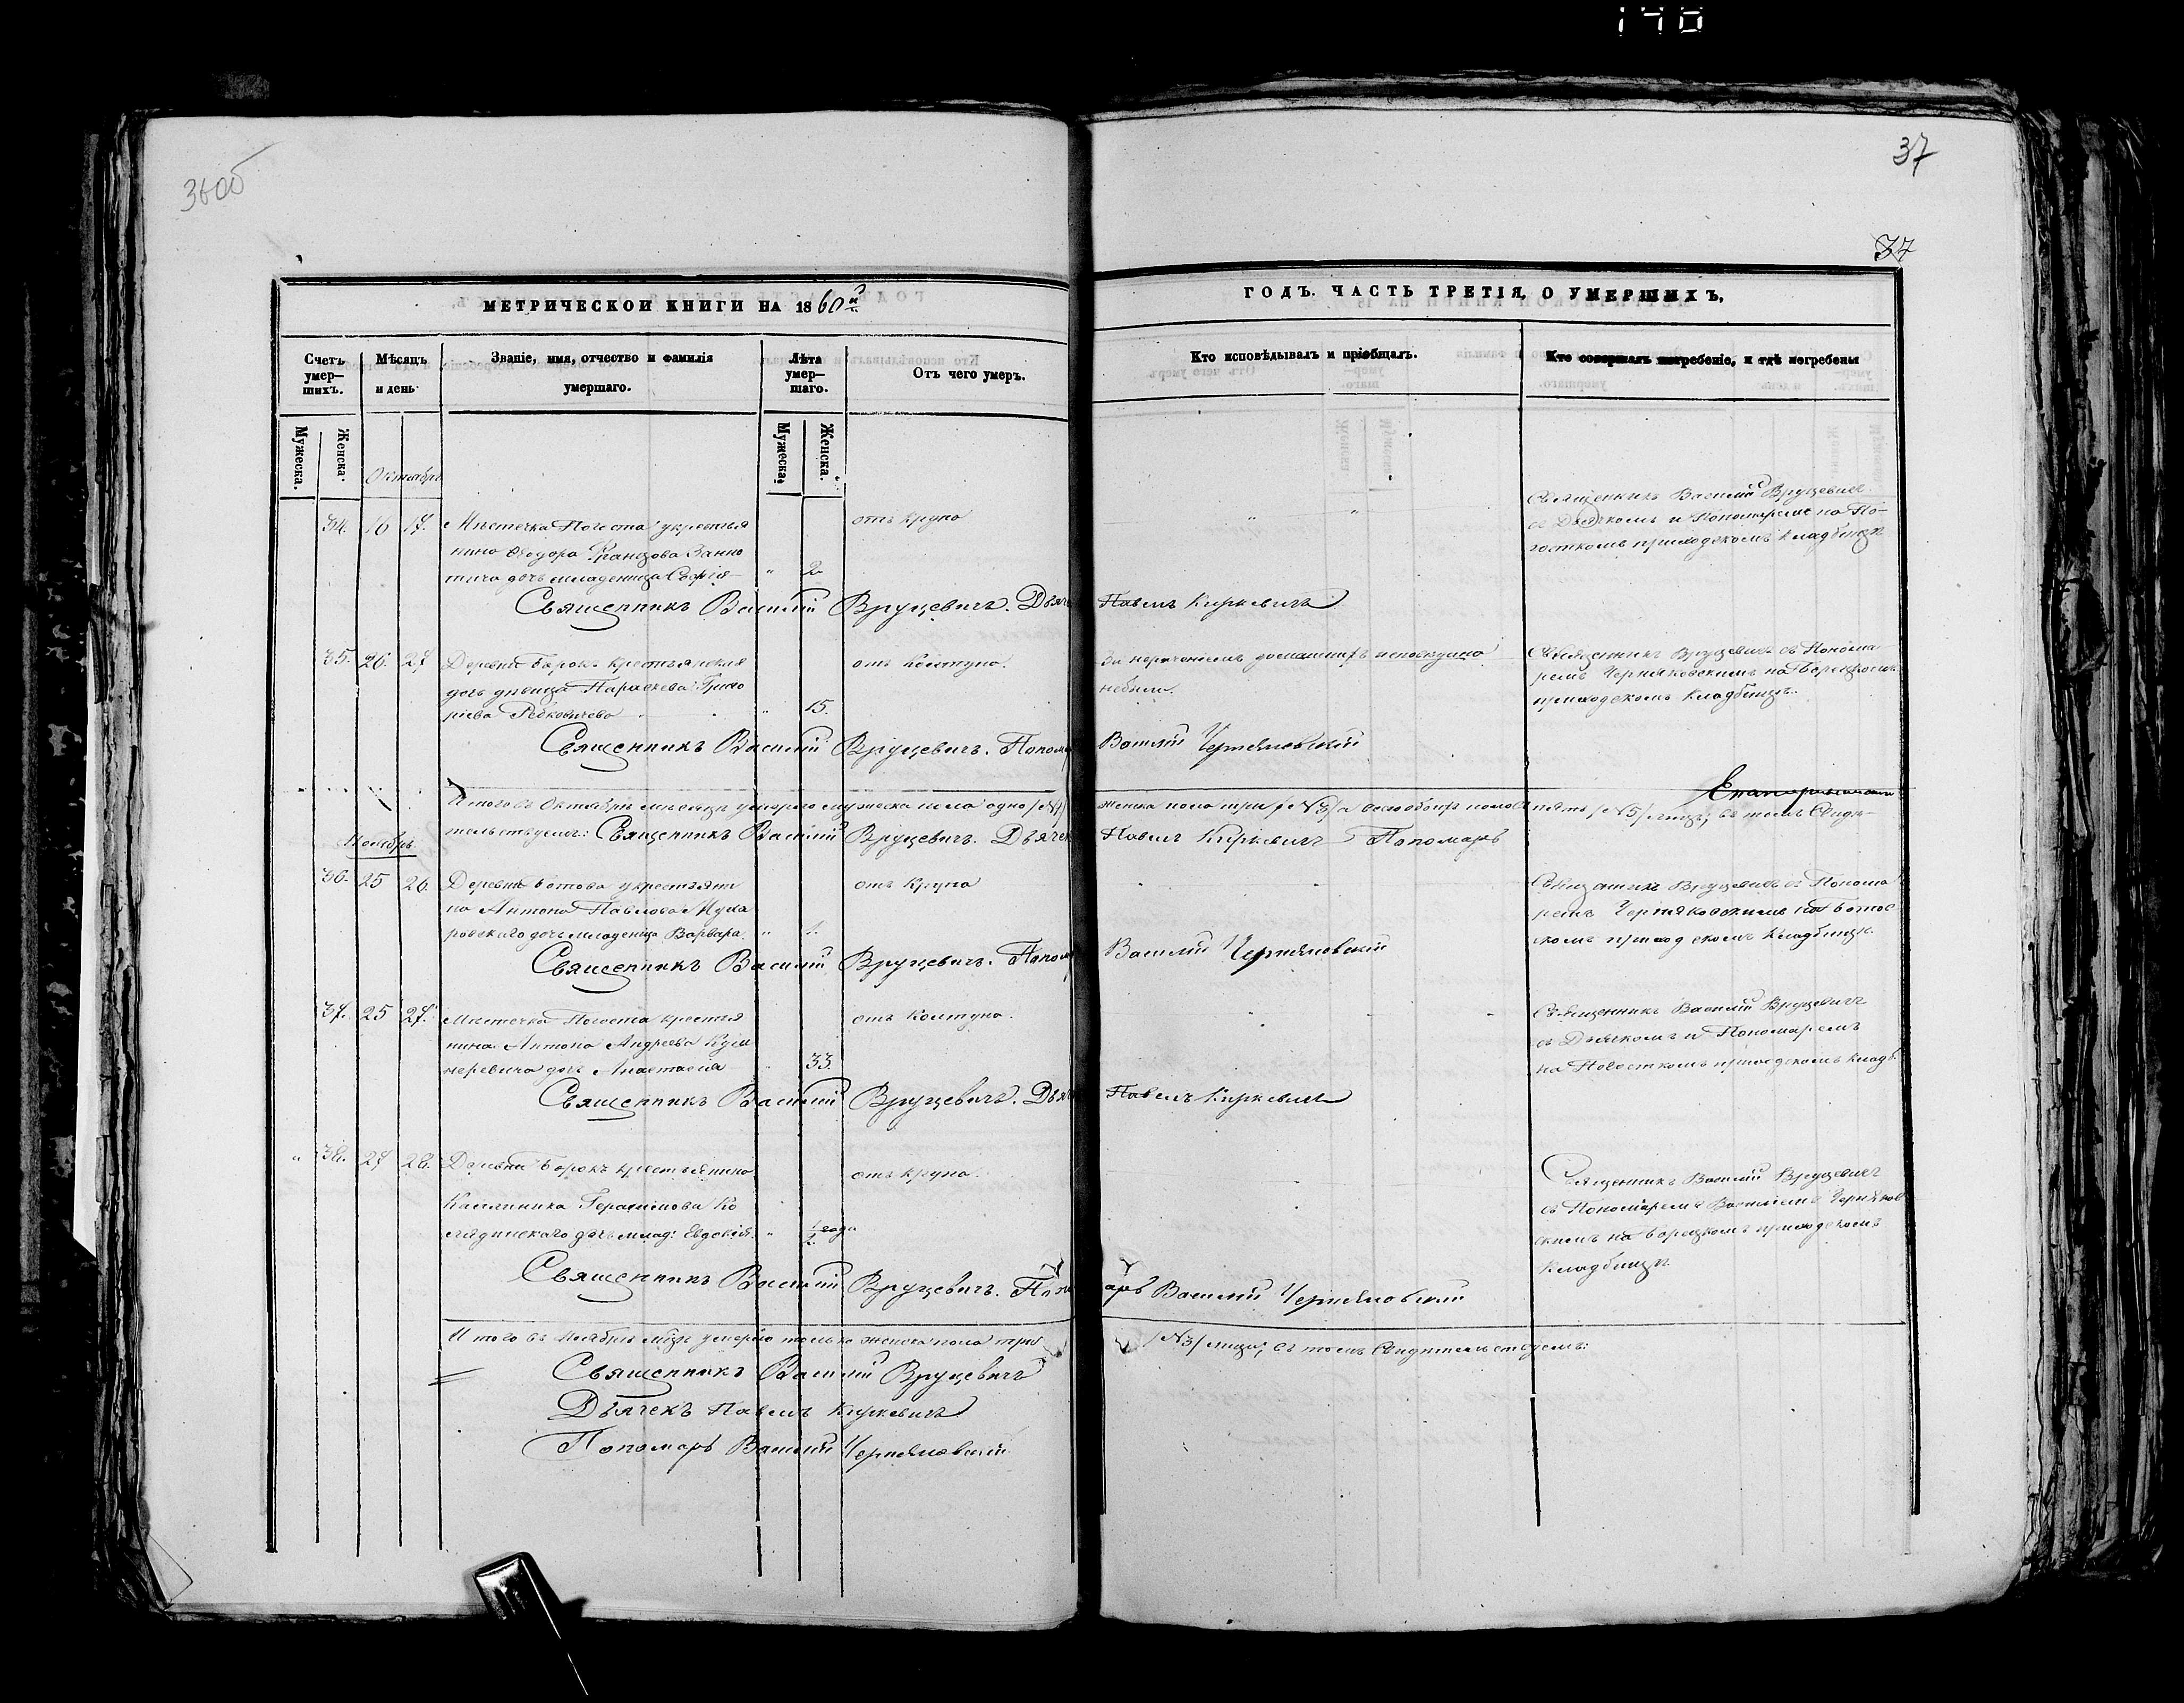 140
36об
37
37
МЕТРИЧЕСКОЙ КНИГИ НА 1860й
ГОДЪ. ЧАСТЬ ТРЕТІЯ, О УМЕРШИХЪ,
Счетъ умер–шихъ.
Мѣсяцъ и день
Званіе, имя, отчество и фамилія
умершаго.
Лѣта умер–шаго.
Отъ чего умеръ.
Кто исповѣдывалъ и пріобщалъ.
Кто совершалъ погребеніе, и гдѣ погребены
Мужеска.
Женска.
Мужеска.
Женска.
Октябрь
34. 16 17. Мѣстечка Погоста у крестья
нина Ѳеодора Францова
дочь младеница Софія 2
отъ крупа
Священникъ Василій Вруцевичъ
съ Дьячкомъ и Пономаремъ на По–
госткомъ приходскомъ кладбищѣ
Священникъ Василій Вруцевичъ. Дьяче Павелъ Киркевичъ
35. 26. 27. Деревни Борокъ крестьянская
дочь дѣвица Параскева Григо
ріева 15.
отъ колтуна.
За нерачениемъ
небыли.
Священникъ Вруцевичъ съ Понома
ремъ Черняковскимъ на Борецкомъ
приходскомъ кладбищѣ.
Священникъ Василій Вруцевичъ. Поном Василій Черняковскій
Итого въ Октябрѣ мѣсяцѣ умерло мужеска пола одно женска пола три /№3/ а всего обоего пола /№5/ лицъ, въ томъ Свидѣ–
тельствуемъ: Священникъ Василій Вруцевичъ. Дьячек Павелъ Киркевичъ Пономарь
Ноябрь
36. 25 26. Деревни Ботова у крестьяни
на Антона Павлова
ровскаго дочь младеница Варвара. 1.
отъ крупа
Священникъ Вруцевичъ съ Понома
ремъ Черняковскимъ на Ботов
скомъ приходскомъ кладбищѣ.
Священникъ Василій Вруцевичъ. Поном Василій Черняковскій
37. 25 27. Мѣстечка Погоста крестья
нина Антона Андреева
неревича дочь Анастасія 33.
отъ колтуна.
Священникъ Василій Вруцевичъ
съ Дьячкомъ и Пономаремъ
на Погосткомъ приходскомъ кладб.
Священникъ Василій Вруцевичъ. Дьяч Павелъ Киркевичъ
38. 27 28. Деревни Борокъ крестьянина
Каллиника Герасимова Ко
лядинскаго дочь млад: Евдокія. 1/2 года
отъ крупа.
Священникъ Василій Вруцевичъ
съ Пономаремъ Василіемъ Черняков
скимъ на Борецкомъ приходскомъ
кладбищѣ.
Священникъ Василій Вруцевичъ. Пономарь Василій Черняковскій
Итого въ Ноябрѣ мѣцѣ умерло только женска пола три /№3/ лица; въ томъ Свидѣтельствуемъ:
Священникъ Василій Вруцевичъ
Дьячекъ Павелъ Киркевичъ
Пономарь Василій Черняковскій